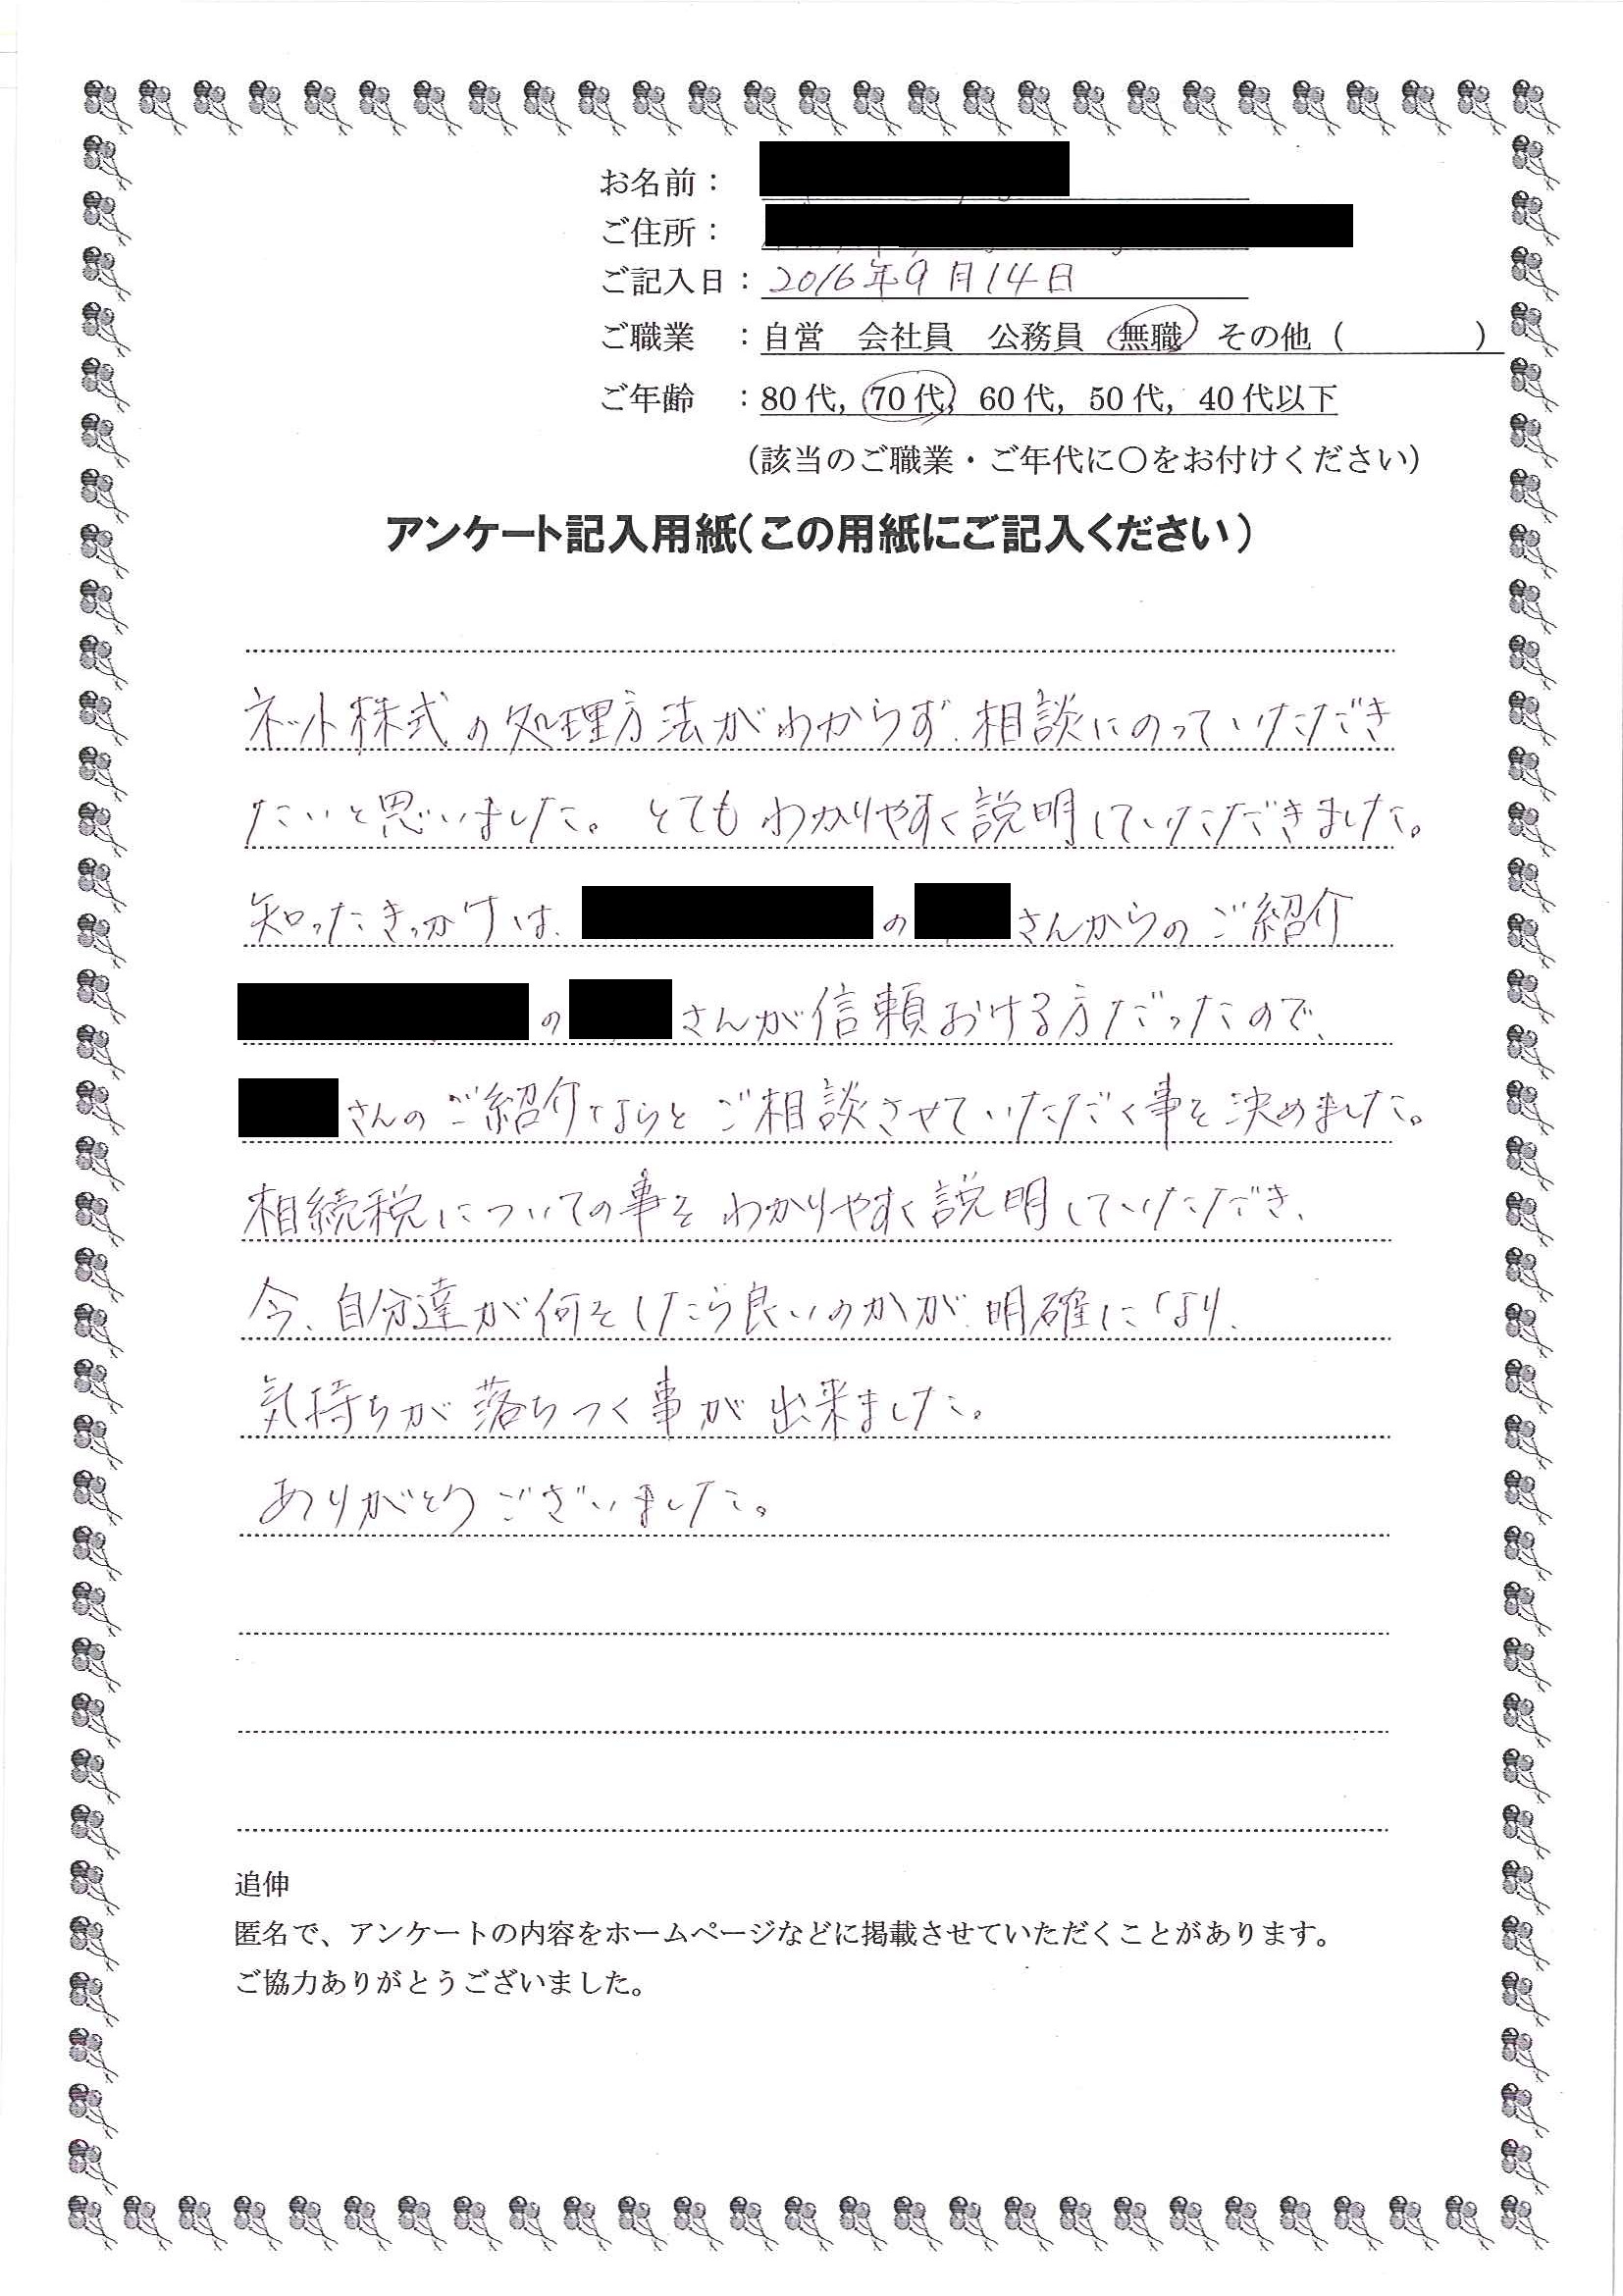 お名前：
ご住所：
ご記入日：2016年9月14日
ご職業　：自営　会社員　公務員　無職　その他（　　　　）
ご年齢　：80代，70代，60代，50代，40代以下
（該当のご職業・ご年代に〇をお付けください）
アンケート記入用紙（この用紙にご記入ください）
ネット株式の処理方法がわからず、相談にのっていただき
たいと思いました。とてもわかりやすく説明していただきました。
知ったきっかけは、の さんからのご紹介
の さんが信頼おける方だったので、
さんのご紹介ならとご相談させていただく事を決めました。
相続税についての事をわかりやすく説明していただき、
今、自分達が何をしたら良いのかが、明確になり、
気持ちが落ちつく事が出来ました。
ありがとうございました。
追伸
匿名で、アンケートの内容をホームページなどに掲載させていただくことがあります。
ご協力ありがとうございました。